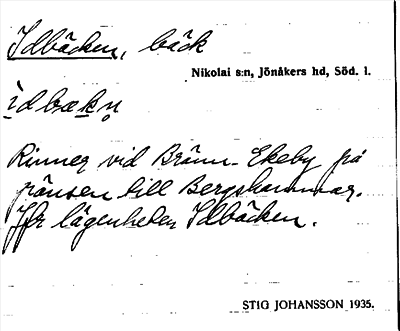 Idbäcken, bäck
Nikolai s:n, Jönåkers hd, Söd. l.
ìdbæk̥n̥
Rinner vid Bränn-Ekeby på
gränsen till Bergshammar.
Jfr lägenheten Idbäcken.
STIG JOHANSSON 1935.